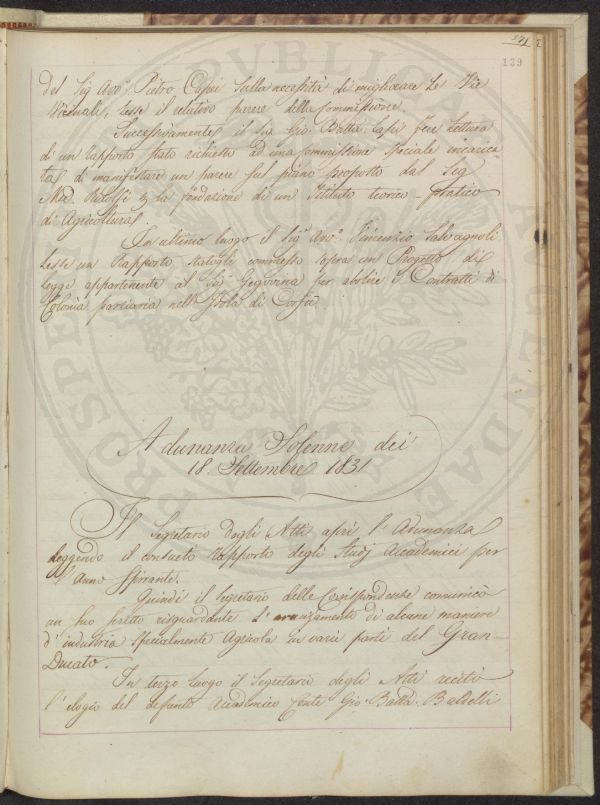 271
139
del Sig Avv.o Pietro Capei sulla necessità di migliorare Le Vie
Vicinali, Lesse il relativo parere della Commissione.
Successivamente il Sig. Gio. Batta Lapi fece Lettura
di un rapporto stato richiesto ad una Commissione speciale incarica
ta di manifestare un parere sul piano proposto dal Sig
Mse. Ridolfi per la fondazione di un Istituto teorico-pratico
di Agricoltura.
In ultimo luogo il Sig.r Avv.o Vincenzio Salvagnoli
Lesse un Rapporto statogli commesso sopra un Progetto di
Legge appartenente al Sig.r per abolire i Contratti di
Colonia parziaria nell'Isola di Corfù.
Adunanza Solenne dei
18. Settembre 1831
Il Segretario degli Atti aprì l'Adunanza
Leggendo il consueto Rapporto degli Studj Accademici per
l'Anno Spirante.
Quindi il Segretario delle Corrispondenze comunicò
un suo scritto risguardante L'avanzamento di alcune maniere
d'industria specialmente Agricola in varie parti del Gran-
Ducato.
In terzo luogo il Segretario degli Atti recitò
l'elogio del defunto Accademico Conte Gio. Batta. Baldelli
PUBLICA
PROSPERITATI AUGENDAE